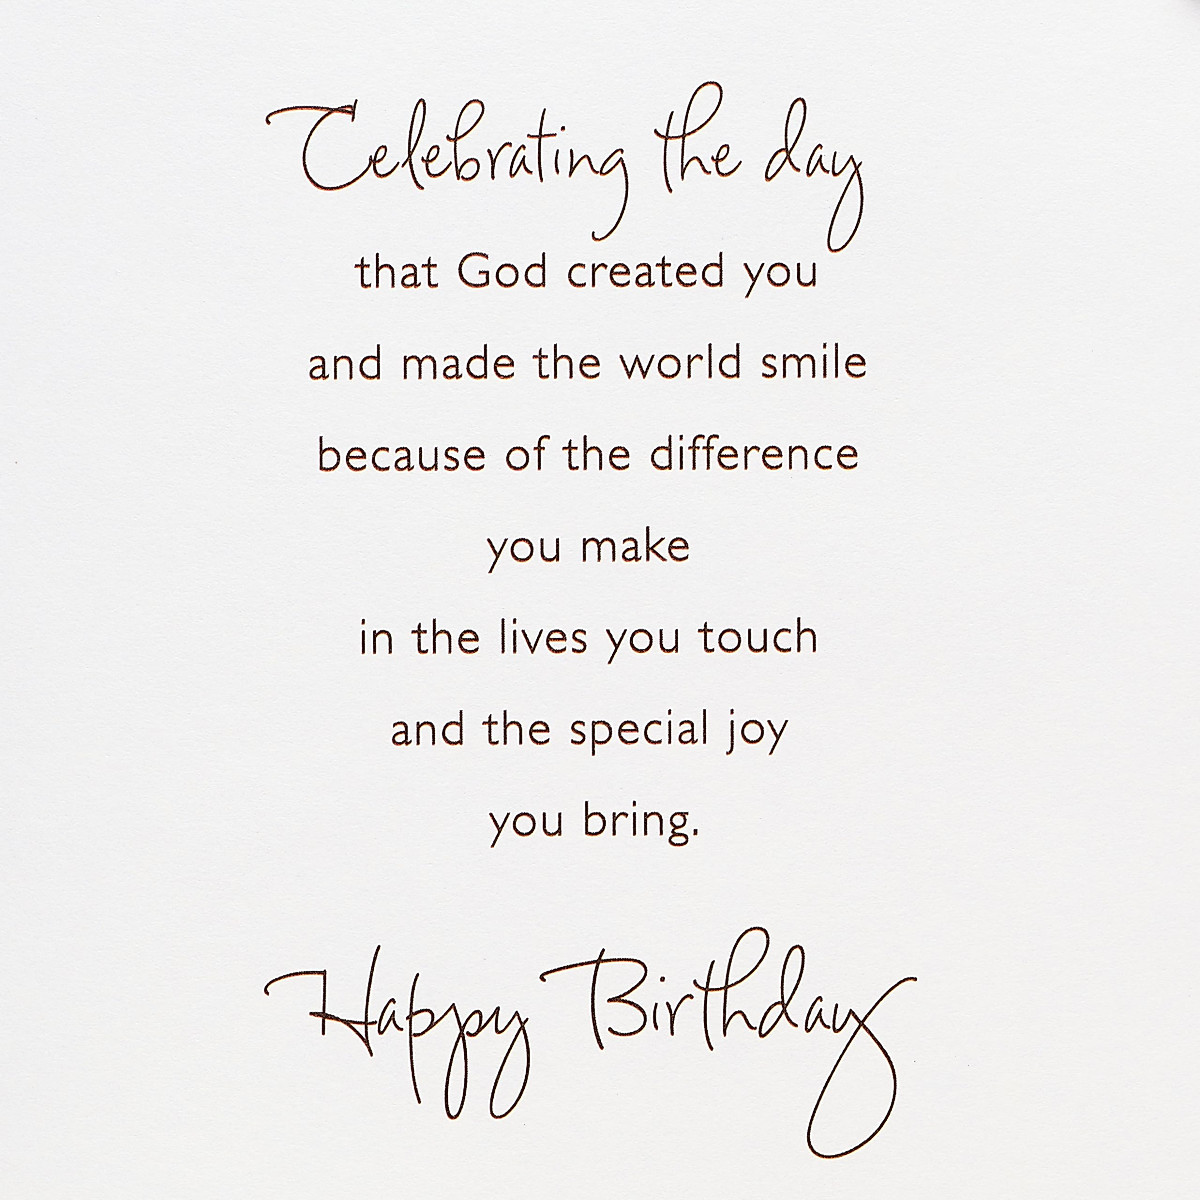 Celebrating the day
that God created you
and made the world smile
because of the difference
you make
in the lives you touch
and the special joy
you bring.
Happy Birthday